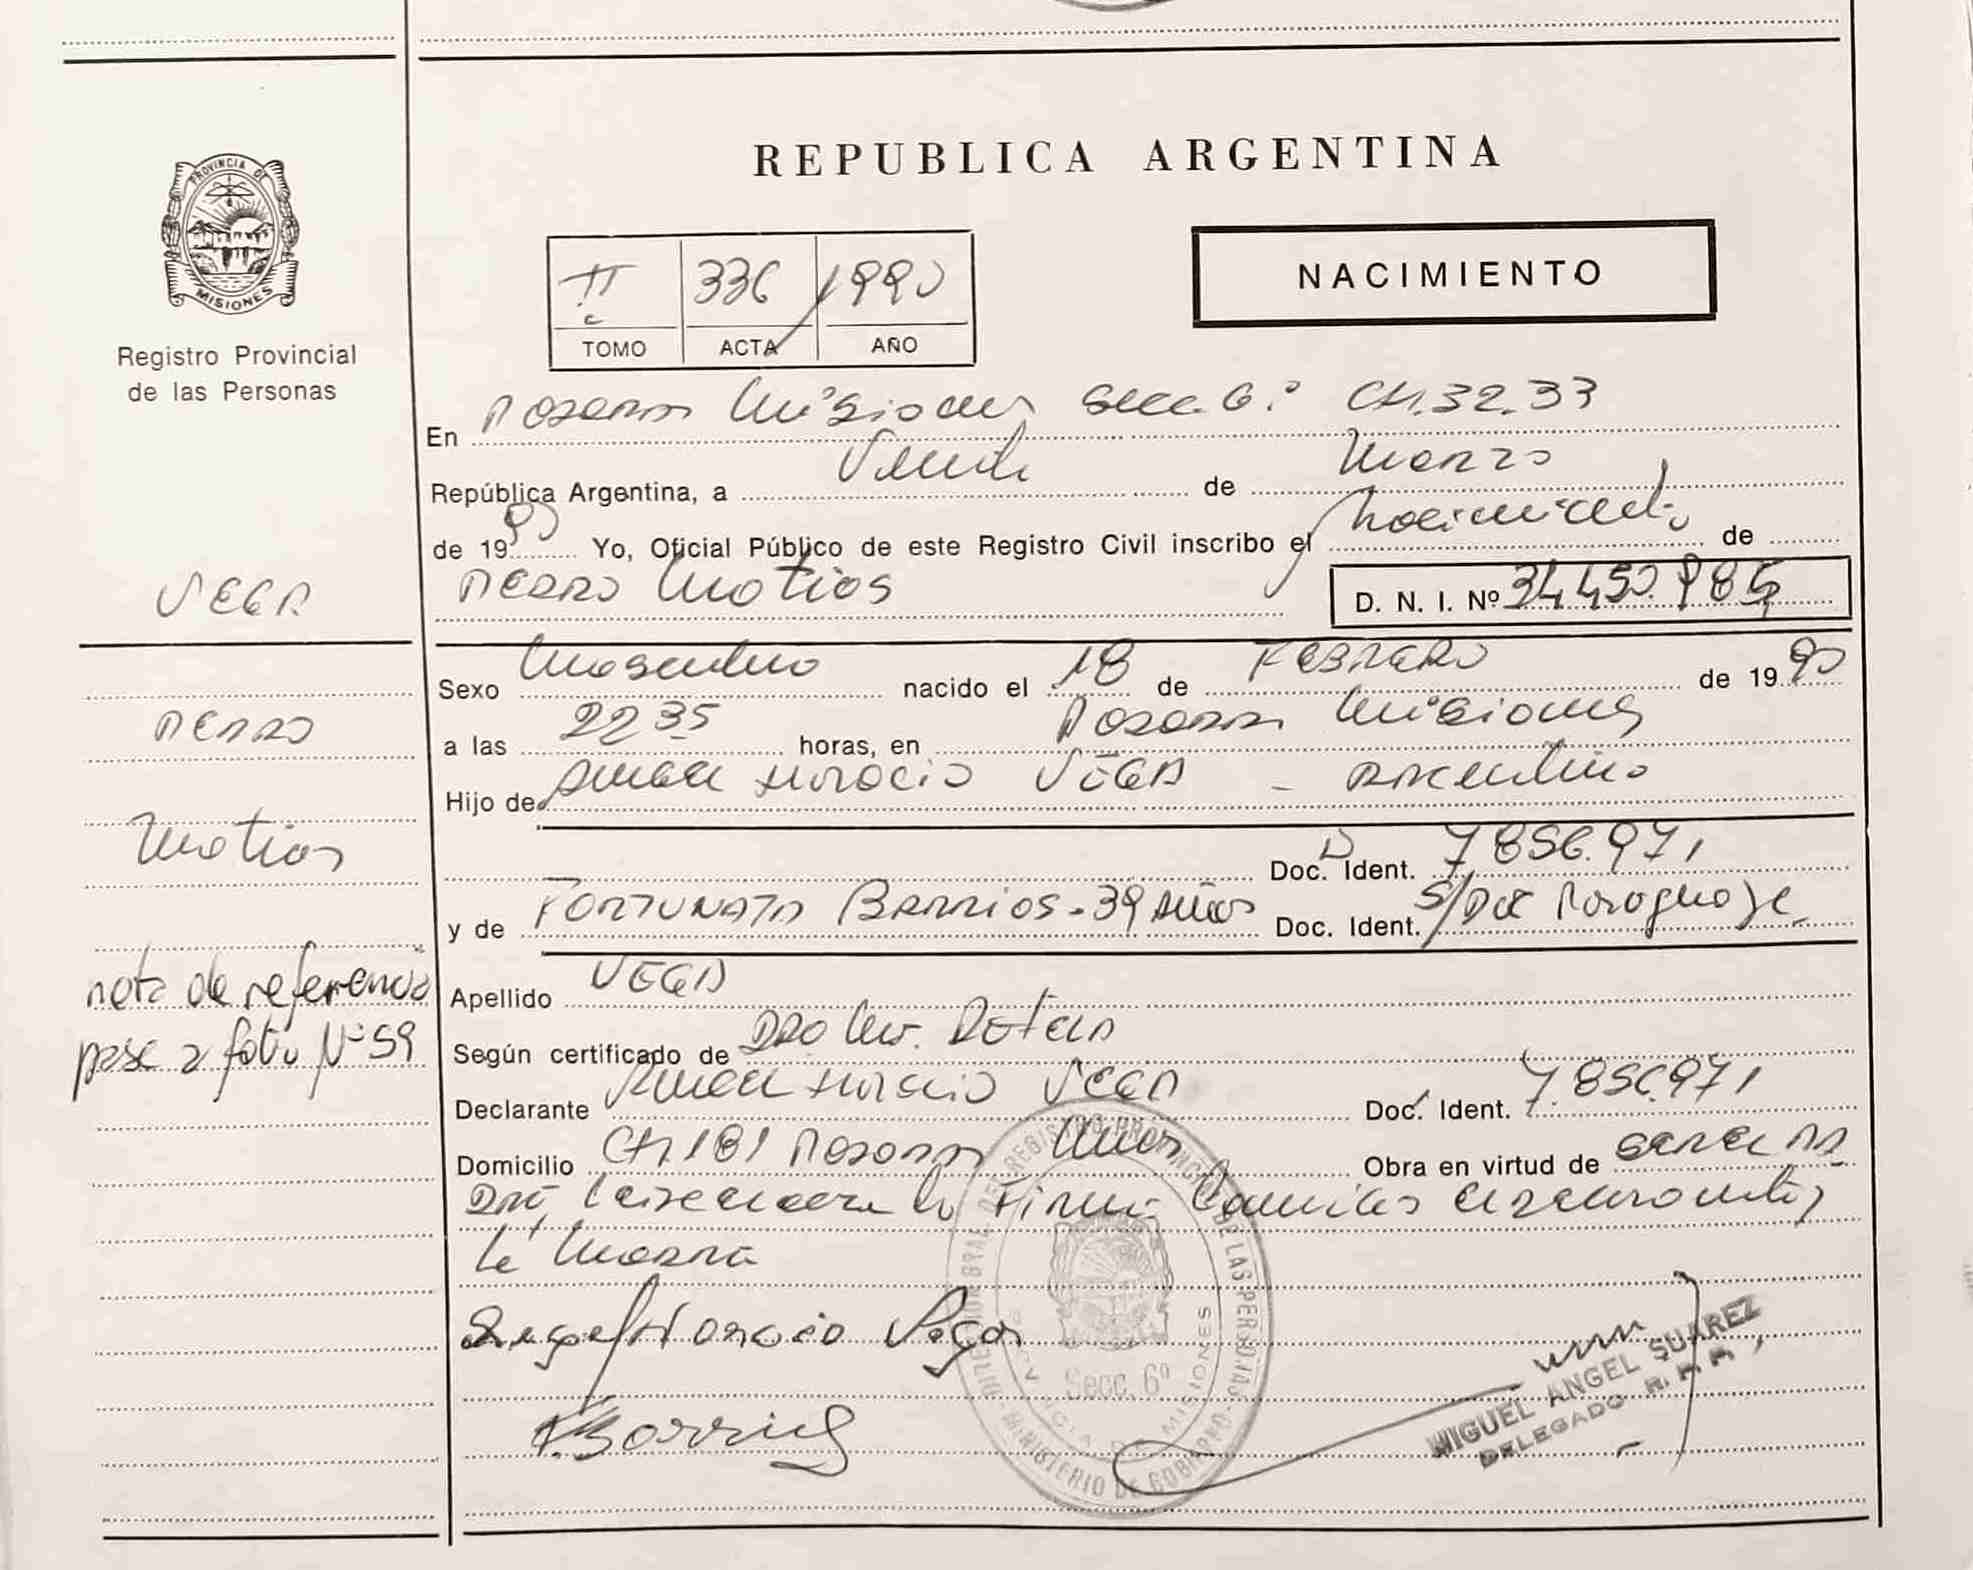 REPUBLICA ARGENTINA
PROVINCIA DE
MISIONES
Registro Provincial
de las Personas
NACIMIENTO
II 336 1990
TOMO ACTA AÑO
En Posadas Misiones Secc. 6º CH. 32.33
República Argentina, a Veinte de Marzo
de 1990 Yo, Oficial Público de este Registro Civil inscribo el Nacimiento de
PEDRO Matias D. N. I. Nº 34.450.985
VEGA
Sexo Masculino nacido el 18 de FEBRERO de 1990
PEDRO
a las 22 35 horas, en Posadas Misiones
Hijo de Angel Horacio VEGA - Argentino
Matias
Doc. Ident. 7.856.971
y de FORTUNATA BARRIOS - 39 Años Doc. Ident. S/Doc Paraguaya
nota de referencia
pase a folio Nº 59
Apellido VEGA
Según certificado de
Declarante Angel Horacio VEGA Doc. Ident. 7.856.971
Domicilio CH 181 Posadas Mnes Obra en virtud de
Firma
la Madre
Angel Horacio Vega
F Barrios
DIRECCION GRAL. DEL REGISTRO PROVINCIAL DE LAS PERSONAS
MINISTERIO DE GOBIERNO
PROVINCIA DE MISIONES
Secc. 6º
MIGUEL ANGEL SUAREZ
DELEGADO R. P. P.